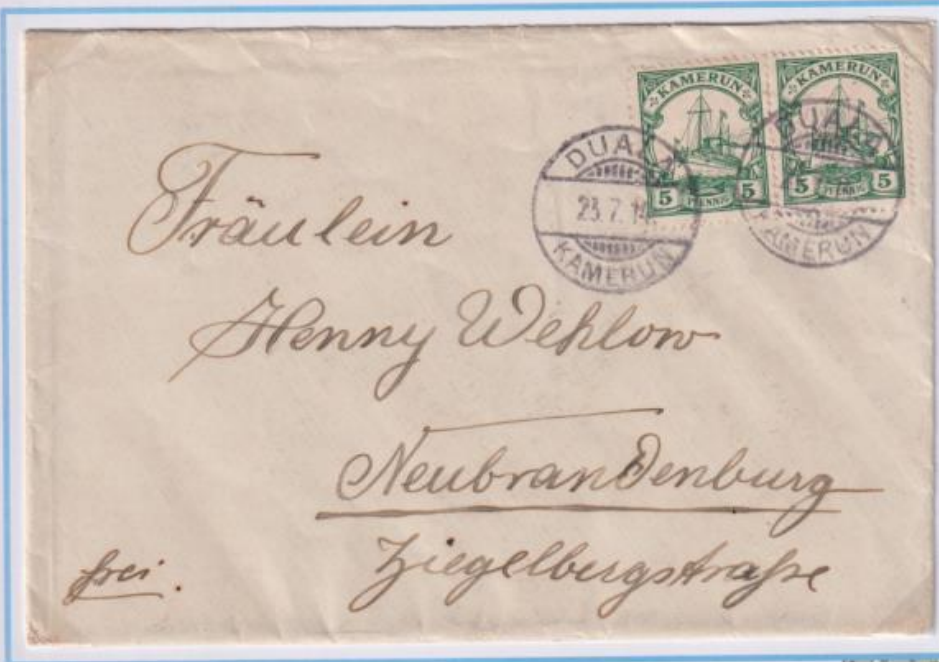 KAMERUN
5 PFENNIG 5
KAMERUN
5 PFENNIG 5
DUALA
23.7.14
KAMERUN
DUALA
KAMERUN
Fräulein
Henny Wehlow
Neubrandenburg
Ziegelbergstraße
frei.